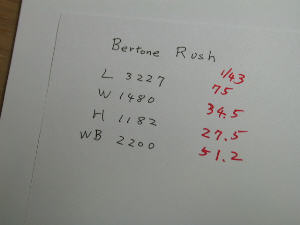 Bertone Rush
1/43
L 3227 75
W 1480 34.5
H 1182 27.5
WB 2200 51.2